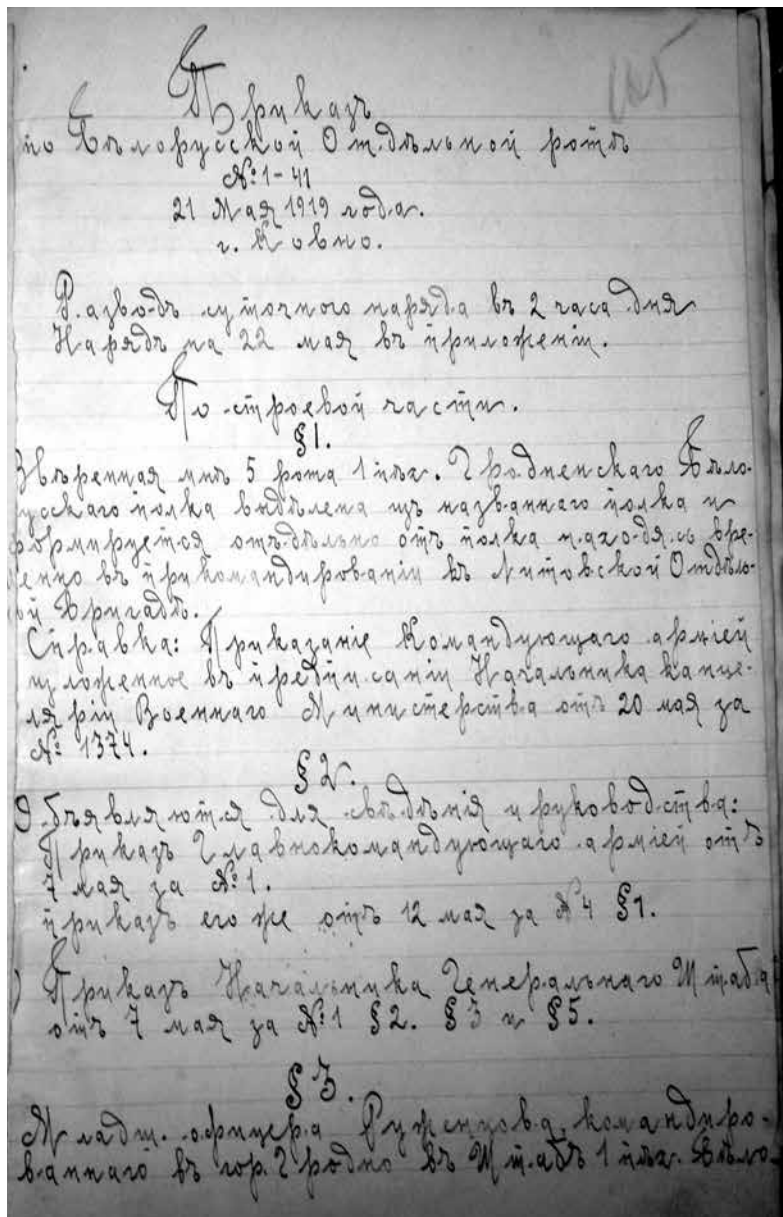 Приказъ
по Бѣлорусской Отдѣльной ротѣ
№ 1-41
21 Мая 1919 года.
г. Ковно.
Разводъ суточного наряда въ 2 часа дня
Нарядъ на 22 мая въ приложеніи.
По строевой части.
§1.
Ввѣренная мнѣ 5 рота 1 пѣх. Гродненскаго Бѣло-
русскаго полка выдѣлена изъ названнаго полка и
формируется отъдѣльно отъ полка находясь вре-
менно въ прикомандированіи къ Литовской Отдѣль-
ной Бригадѣ.
Справка: Приказаніе Командующаго арміей
изложенное въ предписаніи Начальника канце-
ляріи Военнаго Министерства отъ 20 мая за
№ 1374.
§2.
Объявляются для свѣдѣнія и руководства:
Приказъ Главнокомандующаго арміей отъ
7 мая за №1.
приказъ его же отъ 12 мая за №4 §1.
) Приказъ Начальника Генеральнаго Штаба
отъ 7 мая за №1 §2. §3 и §5.
§3.
Младш. офицера Руженцова, командиро-
ваннаго въ гор. Гродно въ Штабъ 1 пѣх. Бѣло-